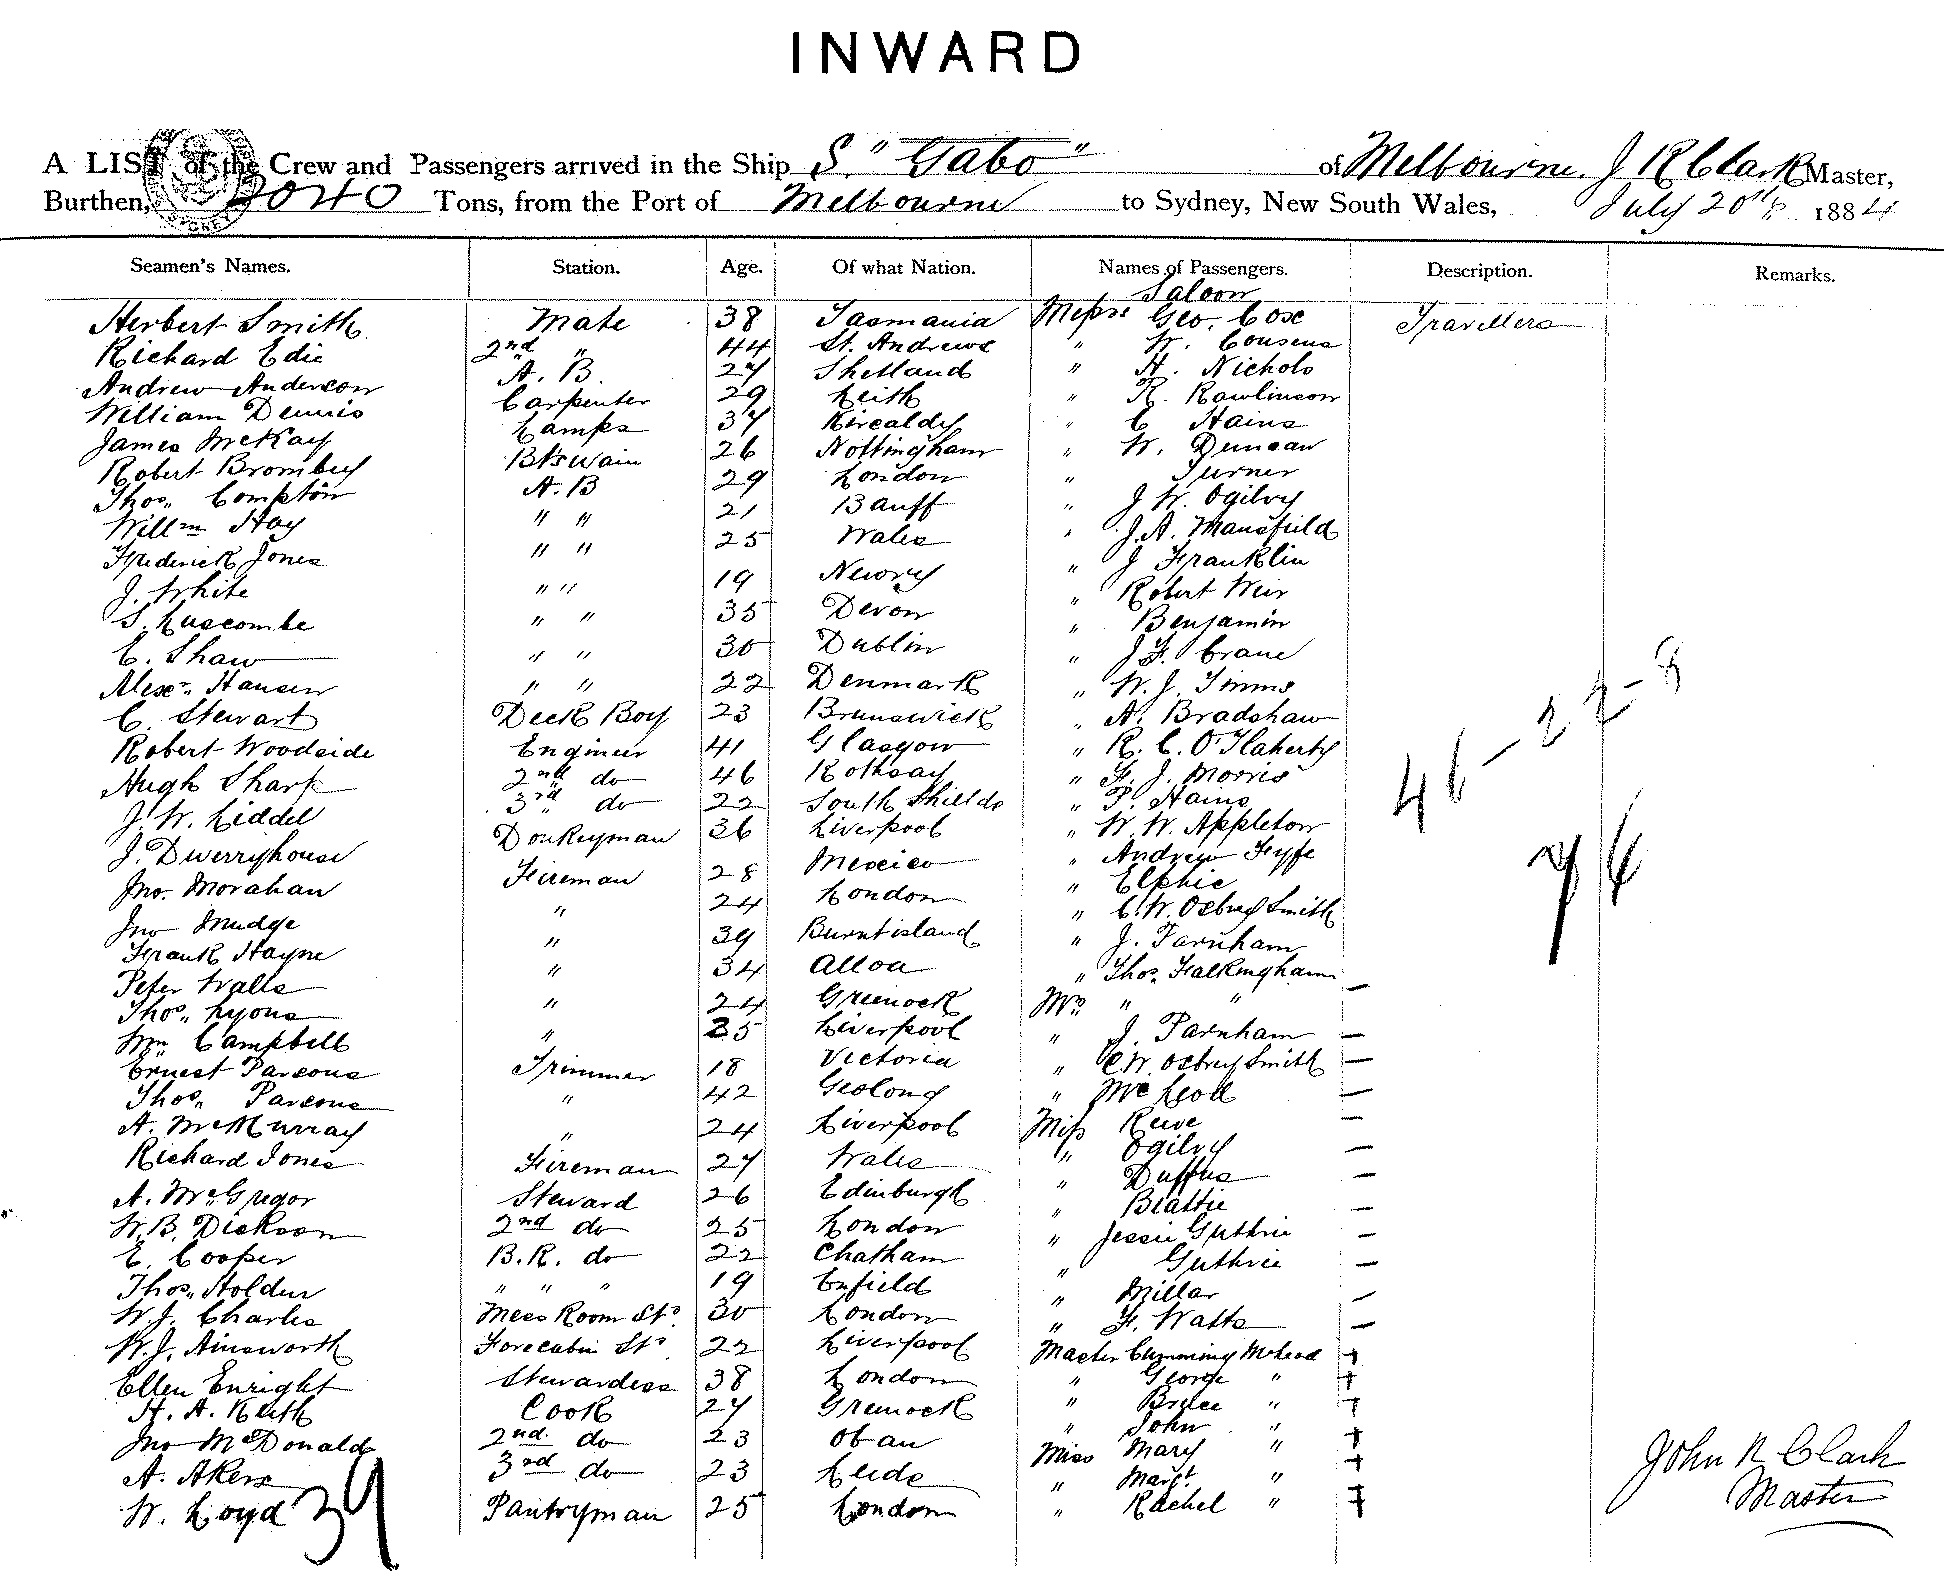 INWARD
A LIST of the Crew and Passengers arrived in the Ship S. "Gabo" of Melbourne. J R Clark Master,
Burthen, 2040 Tons, from the Port of Melbourne to Sydney, New South Wales, July 20th 1884
Seamen's Names. Station. Age. Of what Nation. Names of Passengers. Description. Remarks.
Saloon
Herbert Smith Mate 38 Tasmania Messrs Geo. Cose Travellers
Richard Edie 2nd " 44 St. Andrews " W. Cousens
Andrew Anderson A. B. 27 Shetland " H. Nichols
William Dennis Carpenter 29 Leith " R. Rawlinson
James McKay Lamps 37 Kircaldy " C Hains
Robert Bromby Btswain 26 Nottingham " W. Duncan
Thos. Compton A. B 29 London " Turner
Willm Hay " " 21 Banff " J W. Ogilvy
Frederick Jones " " 25 Wales " J. A. Mansfield
J. White " " 19 Newry " J Franklin
S. Luscombe " " 35 Devon " Robert Weir
C. Shaw " " 30 Dublin " Benjamin
Alexr. Hansen " " 22 Denmark " J F. Crane
C. Stewart Deck Boy 23 Brunswick " W. J. Timms
Robert Woodside Engineer 41 Glasgow " A. Bradshaw
Hugh Sharp 2nd do 46 Rothsay " R. C. O'Flaherty
J. W. Liddel 3rd do 22 South Shields " F. J. Morris
J. Dwerryhouse Donkeyman 36 Liverpool " P. Hains
Jno. Morahan Fireman 28 Mexico " W. W. Appleton
Jno Mudge " 24 London " Andrew Fyfe
Frank Hayne " 39 Burntisland " Elphic
Peter Walls " 34 Alloa " C. W. Osbrey Smith
Thos. Lyons " 24 Greenock " J. Farnham
Wm. Campbell " 25 Liverpool " Thos. Falkingham
Ernest Parsons Trimmer 18 Victoria Mrs " "
Thos. Parsons " 42 Geolong " J. Farnham
A. McMurray " 24 Liverpool " C. W. Osbrey Smith
Richard Jones Fireman 27 Wales " McLeod
A. McGregor Steward 26 Edinburgh Miss Reeve
W. B. Dickson 2nd do 25 London " Ogilvy
E. Cooper B. R. do 22 Chatham " Duffus
Thos. Holden " " " 19 Enfield " Beattie
W. J. Charles Mess Room Std. 30 London " Jessie Guthrie
W. J. Ainsworth Forecabin Std. 22 Liverpool " Guthrie
Ellen Enright Stewardess 38 London " Millar
H. A. Keith Cook 27 Greenock " F. Watts
Jno McDonald 2nd. do 23 Oban Master Cumming McLeod
A. Akers 3rd do 23 Leeds " George "
W. Loyd Pantryman 25 London " Bruce "
" John "
Miss Mary "
" Margt. "
" Rachel "
39
46 - 22 - 8
76
John R Clark
Master